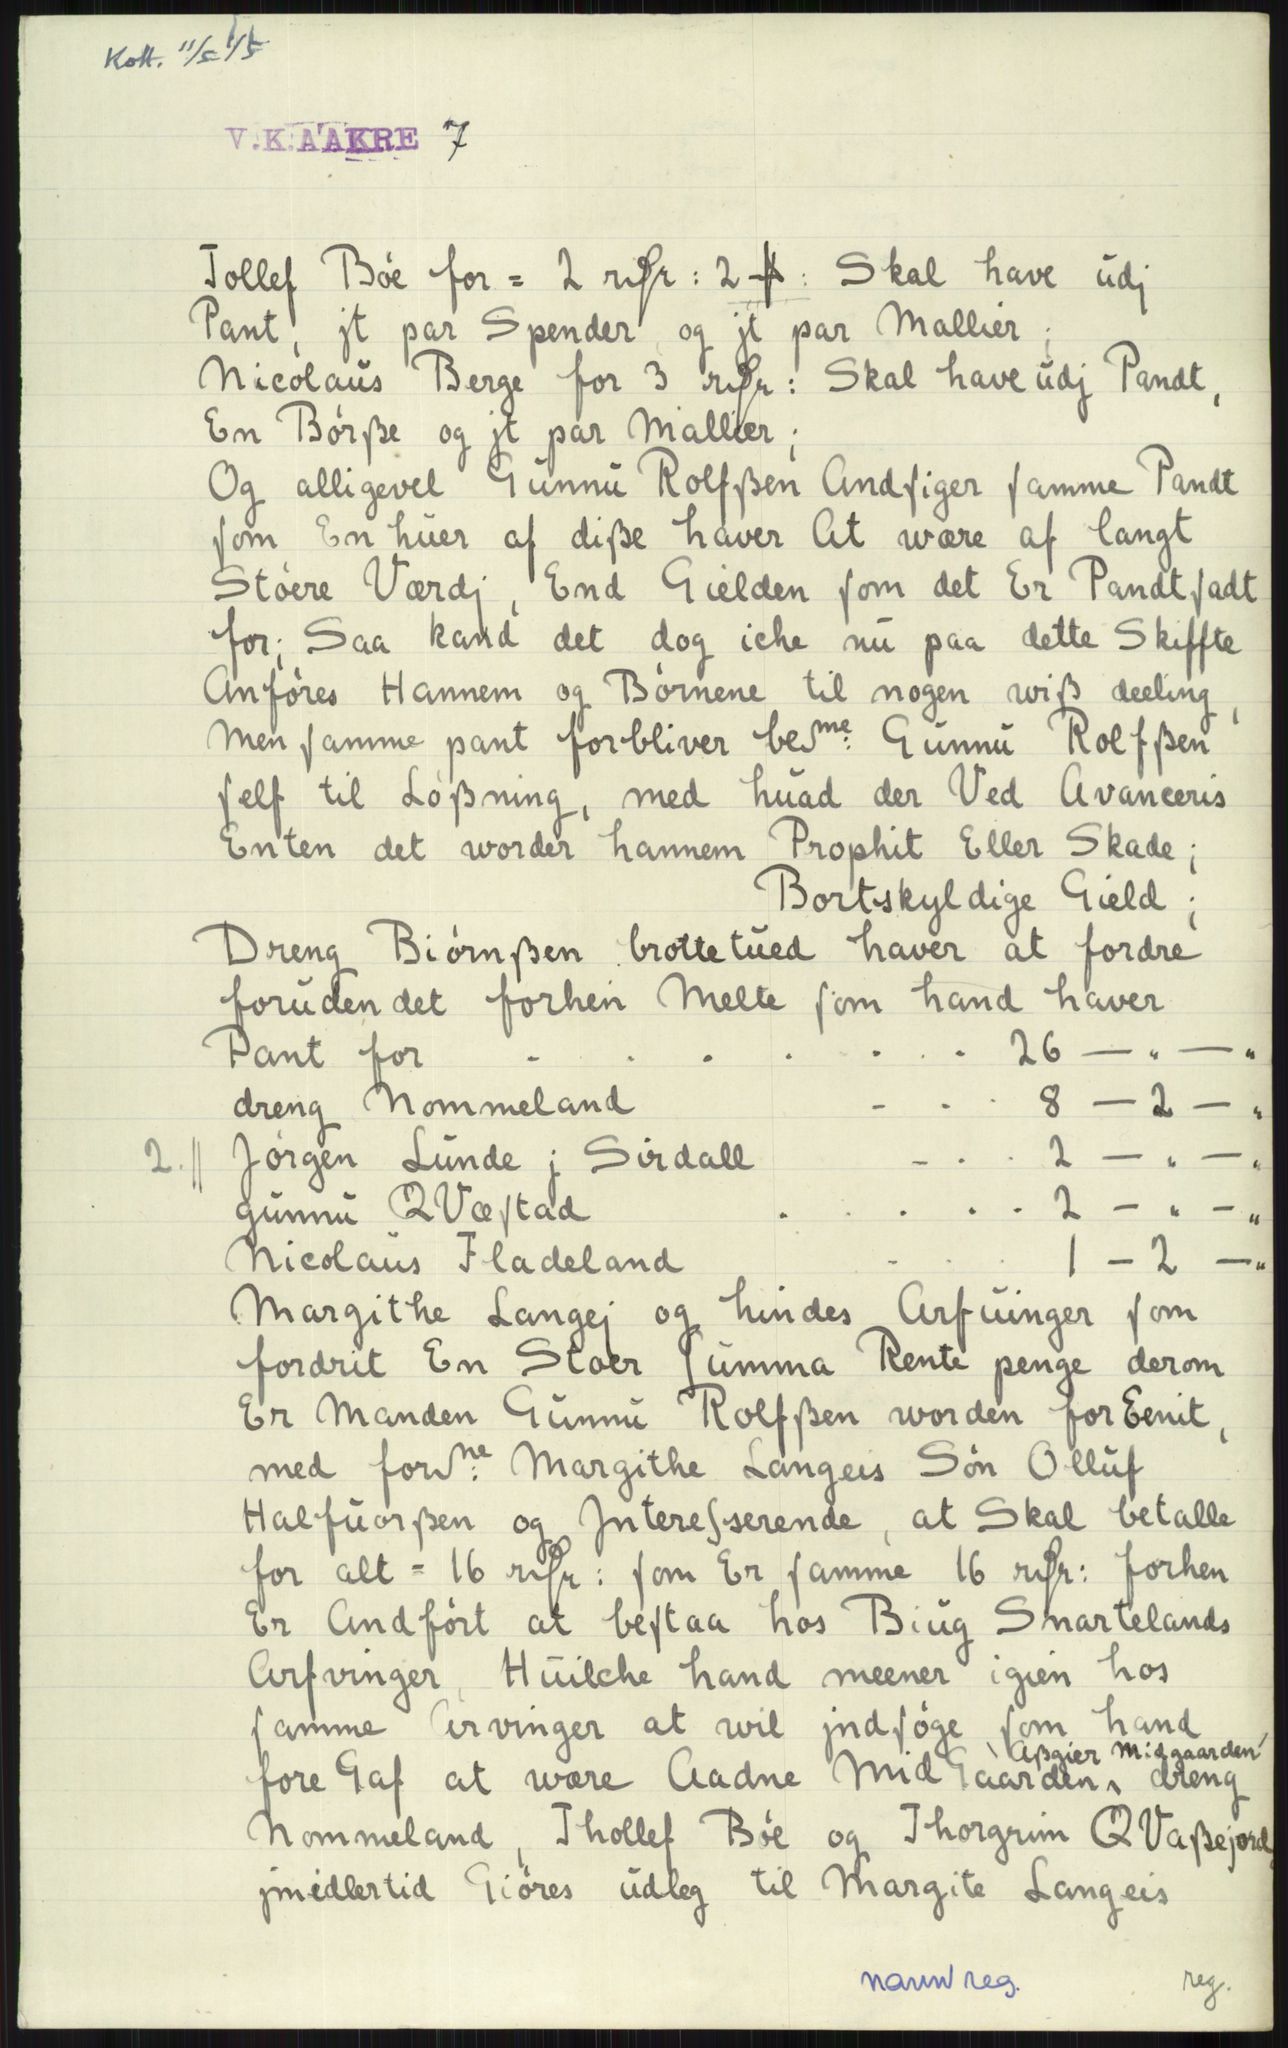 Koll. 11/5 1/5
V.K. AAKRE 7
Tollef Bóe for = 2 rdr : 2 ℔ : Skal have ūdj
Pant, jt par Spender og jt par Mallier ;
Nicolaūs Berge for 3 rdr : Skal have ūdj Pandt,
En Bórße og jt par Mallier ;
Og alligevel Gūnnū Rolfßen Andsiger samme Pandt
som En hūer af diße haver At wære af langt
Stóere Værdj, End Gielden som det Er Pandtsadt
for; Saa kand det dog iche nū paa dette Skiffte
Anfóres Hannem og Bórnene til nogen wiß deeling,
Men samme pant forbliver bem.me: Gūnnū Rolfßen
self til Lóßning, med hūad der Ved Avanceris
Enten det worder hannem Prophit Eller Skade ;
Bortskyldige Gield ;
Dreng Biórnßen brottetūed haver at fordre
forūden det forhen Melte som hand haver
Pant for - . . . . . . 26 — " — "
dreng Nommeland - . . 8 — 2 — "
2. || Jórgen Lūnde j Sirdall - . . 2 — " — "
gūnnū QVæstad . . . . . 2 — " — "
Nicolaūs Fladeland - . . 1 — 2 — "
Margithe Langej og hindes Arfūinger som
fordrit En Stoer Sūmma Rente penge derom
Er Manden Gūnnū Rolfßen worden forEenit,
med for.ne: Margithe Langeis Són Ollūf
Halfūorßen og Jnteresserende, at Skal betalle
for alt = 16 rdr : som Er samme 16 rdr : forhen
Er Andfórt at bestaa hos Biūg Snartelands
Arfvinger, Hūilche hand meener igien hos
samme Arvinger at wil jndsóge, som hand
Aßgier Midgaarden
fore Gaf at wære Aadne Mid Gaarden, dreng
Nommeland, Thollef Bóe og Thorgrim QVaßejord,
jmidlertid Gióres ūdleg til Margite Langeis
navn reg. reg.